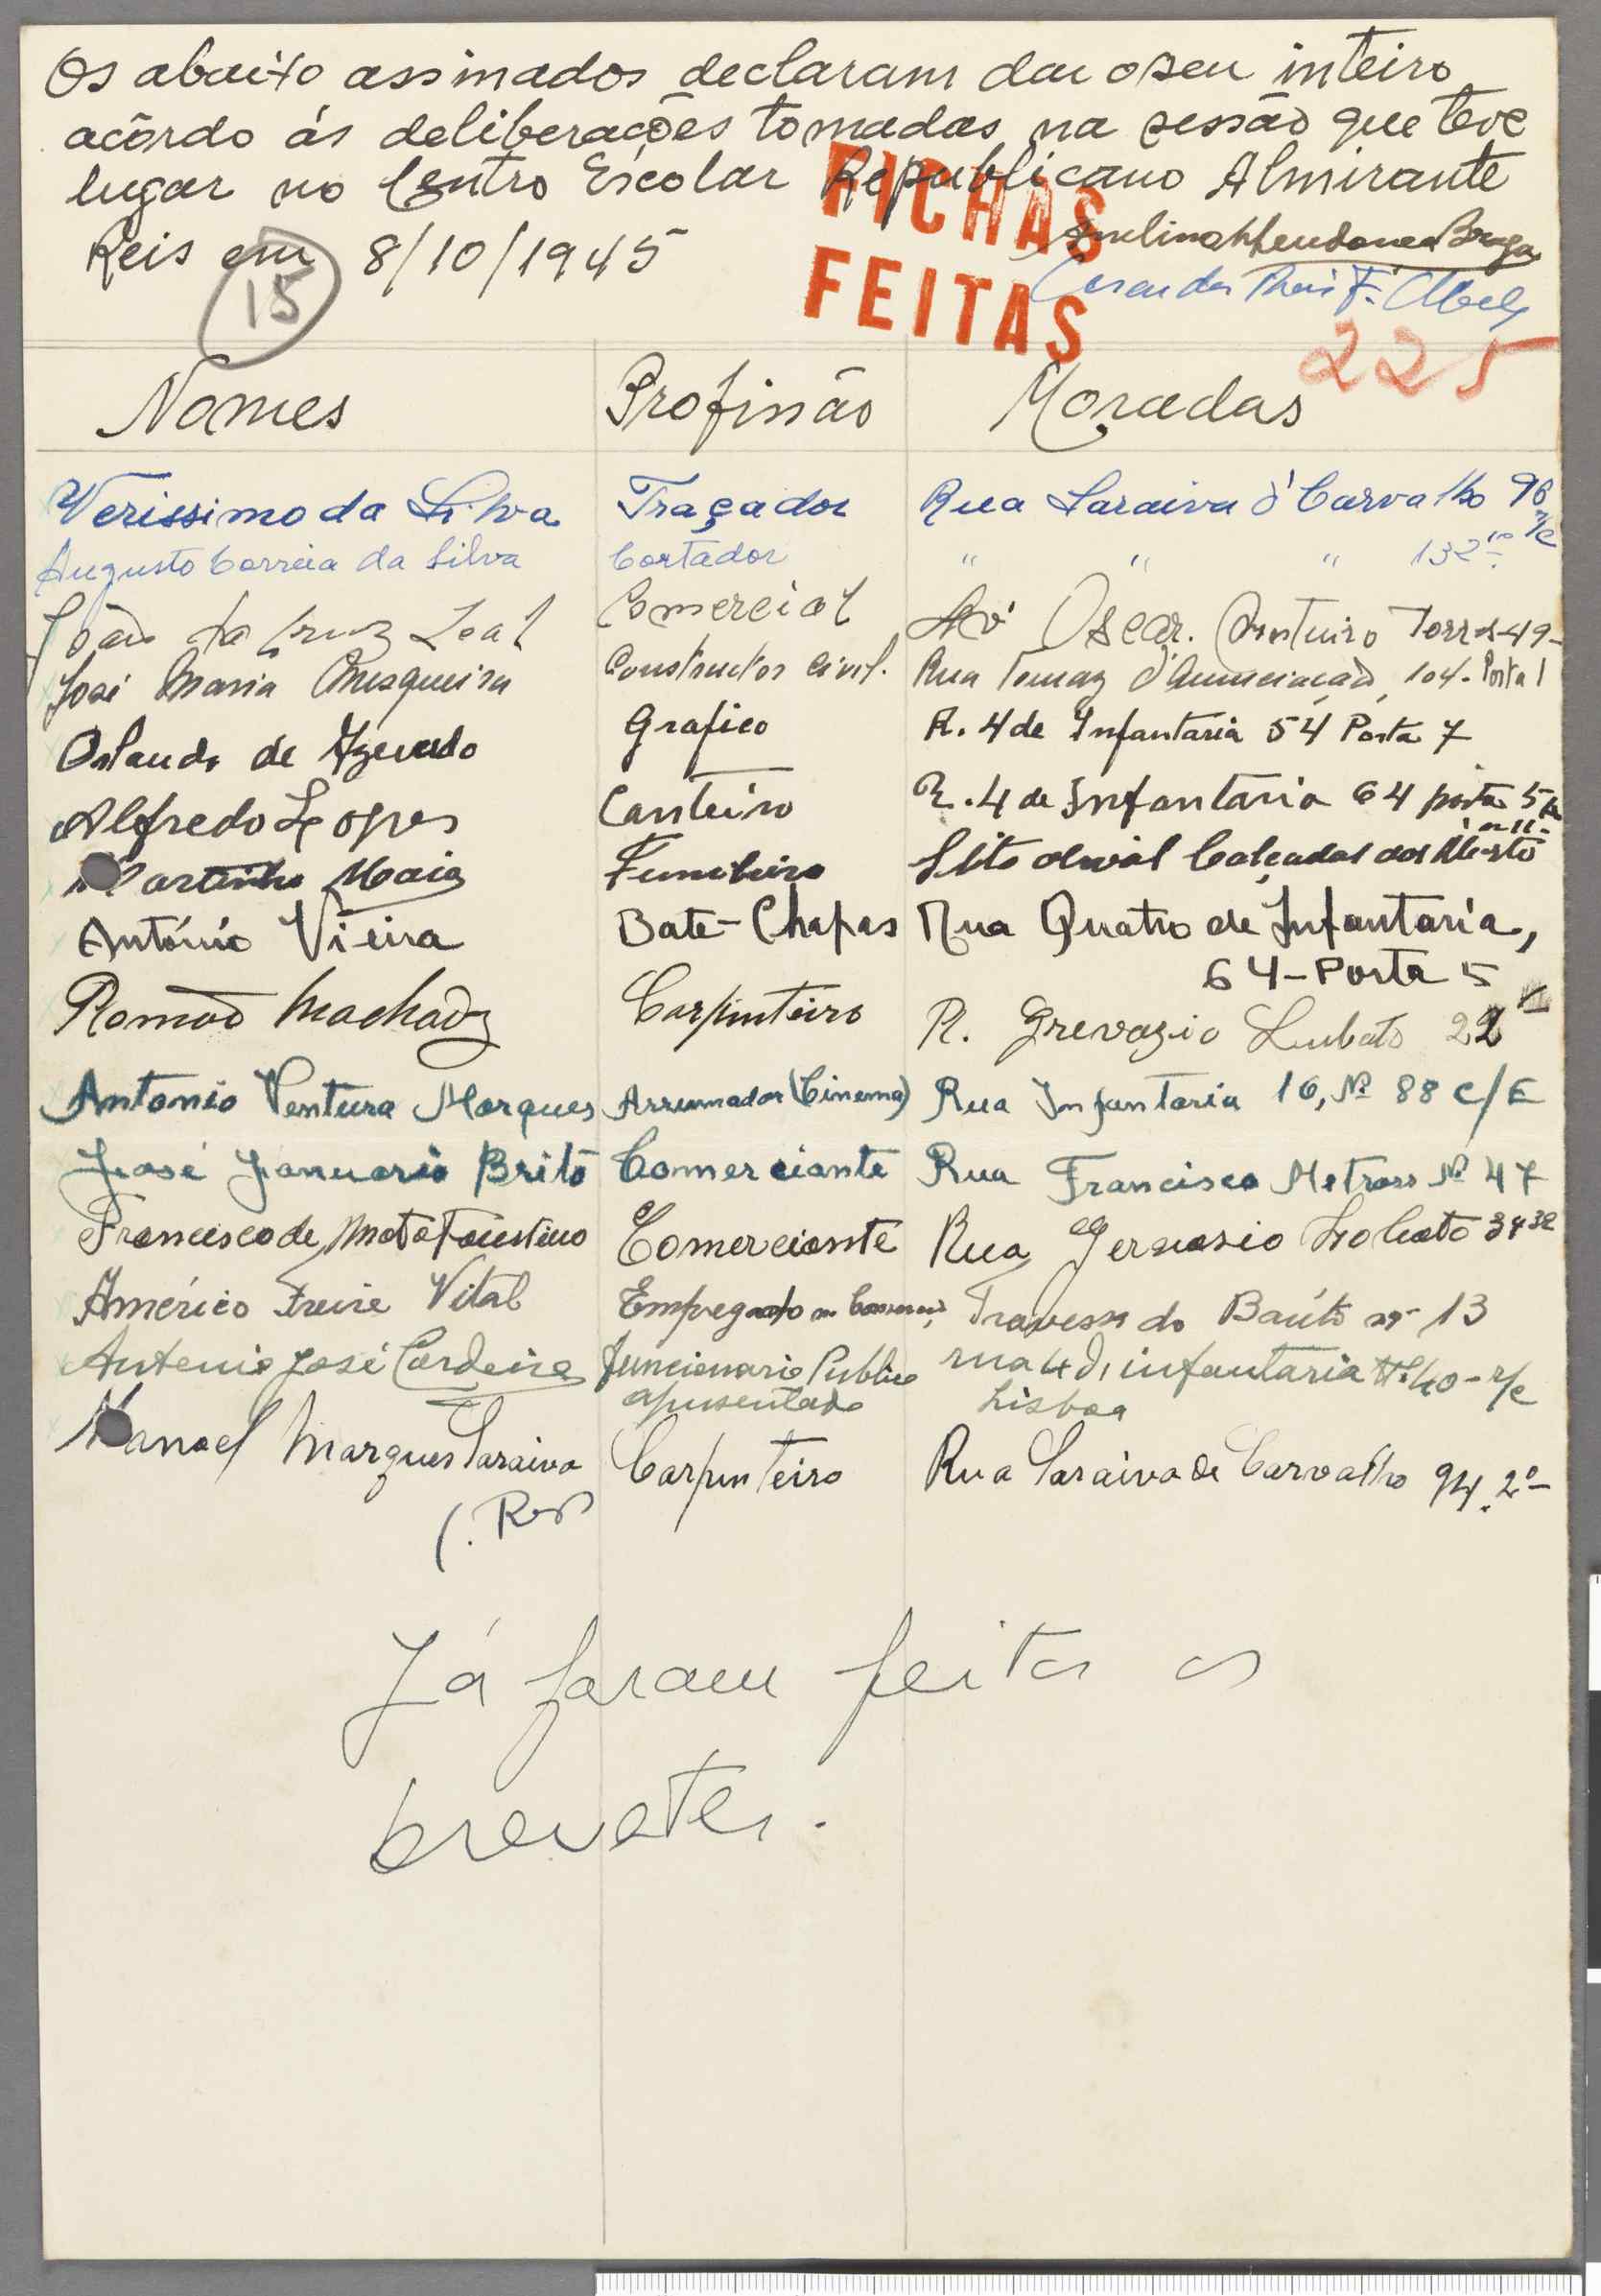 Os abaixo assinados declaram dar o seu inteiro
acôrdo ás deliberações tomadas na sessão que teve
lugar no Centro Escolar Republicano Almirante
Reis em 8/10/1945
FICHAS
FEITAS
15
Braga
225
Nomes Profissão Moradas
Verissimo da Silva Traçador Rua Saraiva d' Carvalho 96 r/c
Augusto Correia da Silva Cortador " " " 132 1º
João da Cruz Leal Comercial Av Oscar Monteiro Torres 49-
José Maria Mesqueira Constructor Civil. Rua Tomaz d'Anunciação, 104- Porta 1
Orlando de Azevedo Grafico R. 4 de Infantaria 54 Porta 7
Alfredo Lopes Canteiro R. 4 de Infantaria 64 porta 5
Martinho Maia Funileiro Sitio olival Calçada dos
António Vieira Bate-Chapas Rua Quatro de Infantaria,
64-Porta 5
Romão Machado Carpinteiro R. Grevazio Lubato 22
Antonio Ventura Marques Arrumador (Cinema) Rua Infantaria 16, Nº 88 C/E
José Januario Brito Comerciante Rua Francisco Metrass Nº 47
Francisco de Mota Faustino Comerciante Rua Gervasio Lobato 34 3º
Américo Freire Vital Empregado no Comercio Travessa do Baúto nº 13
Antonio José Cordeiro funcionario Publico rua 4 d, infantaria Nº 40- r/c
apusentado Lisboa
Manoel Marques Saraiva Carpinteiro Rua Saraiva de Carvalho 94. 2º-
Já foram feitos os
brevetes.